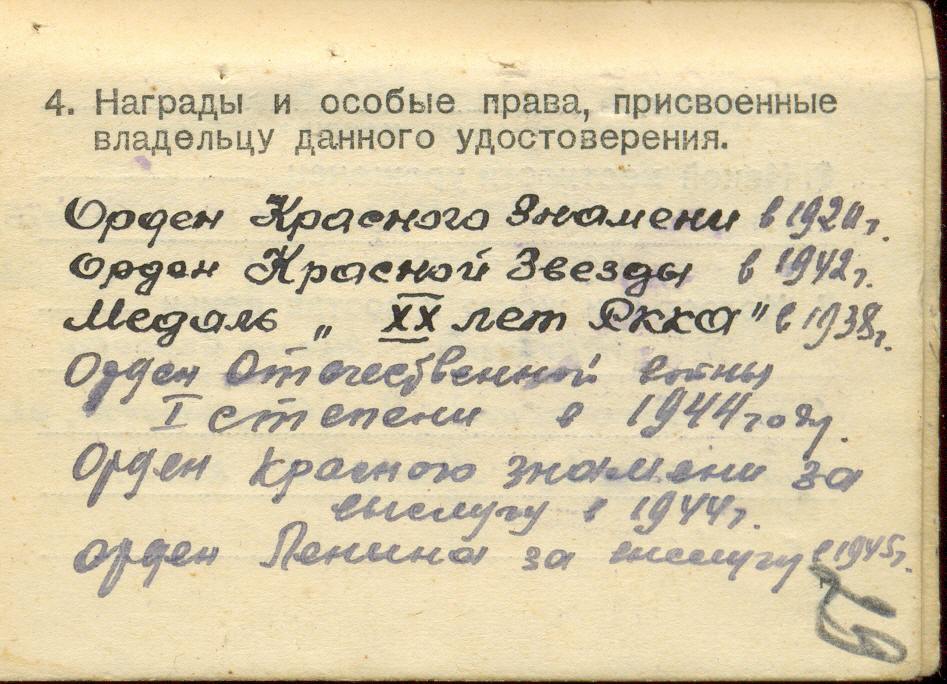 4. Награды и особые права, присвоенные
владельцу данного удостоверения.
Орден Красного Знамени в 1920 г.
Орден Красной Звезды в 1942 г.
Медаль „XX лет РККА" в 1938 г.
Орден Отечественной войны
I степени в 1944 году.
Орден Красного знамени за
выслугу в 1944 г.
орден Ленина за выслугу в 1945 г.